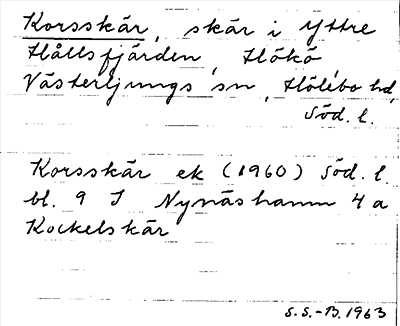 Korsskär, skär i Yttre
Hållsfjärden, Hökö
Västerljungs sn, Hölebo hd,
Söd. l.
Korsskär ek (1960) Söd. l.
bl. 9 I Nynäshamn 4 a
Kockelskär
S.S.-B. 1963